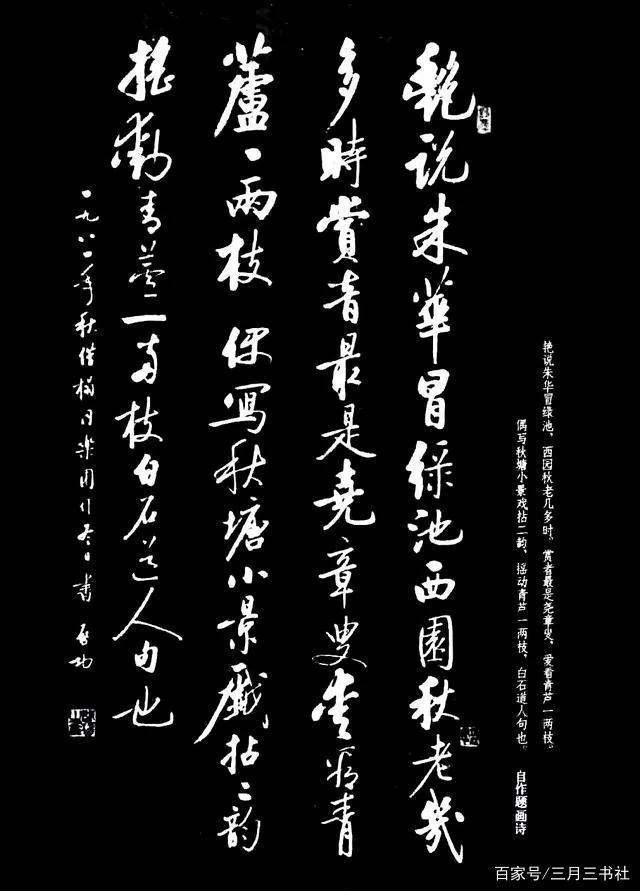 艳说朱华冒绿池、西园秋老几多时。赏者最是尧章叟、爱看青芦一两枝。
偶写秋塘小景戏拈二韵、摇动青芦一两枝、白石道人句也。 自作题画诗
艷说朱華冒緑池西園秋老幾
多時賞音最是堯章叟愛看青
蘆一兩枝 偶寫秋塘小景戲拈二韵
摇動青蘆一两枝白石道人句也
一九八二年秋 書 启功
百家号/三月三书社